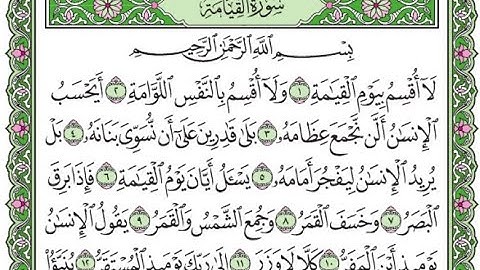 سُورَةُ القِيَامَةِ
بِسْمِ ٱللَّهِ ٱلرَّحْمَٰنِ ٱلرَّحِيمِ
لَآ أُقْسِمُ بِيَوْمِ ٱلْقِيَٰمَةِ ١ وَلَآ أُقْسِمُ بِٱلنَّفْسِ ٱللَّوَّامَةِ ٢ أَيَحْسَبُ
ٱلْإِنسَٰنُ أَلَّن نَّجْمَعَ عِظَامَهُۥ ٣ بَلَىٰ قَٰدِرِينَ عَلَىٰٓ أَن نُّسَوِّىَ بَنَانَهُۥ ٤ بَلْ
يُرِيدُ ٱلْإِنسَٰنُ لِيَفْجُرَ أَمَامَهُۥ ٥ يَسْـَٔلُ أَيَّانَ يَوْمُ ٱلْقِيَٰمَةِ ٦ فَإِذَا بَرِقَ
ٱلْبَصَرُ ٧ وَخَسَفَ ٱلْقَمَرُ ٨ وَجُمِعَ ٱلشَّمْسُ وَٱلْقَمَرُ ٩ يَقُولُ ٱلْإِنسَٰنُ
يَوْمَئِذٍ أَيْنَ ٱلْمَفَرُّ ١٠ كَلَّا لَا وَزَرَ ١١ إِلَىٰ رَبِّكَ يَوْمَئِذٍ ٱلْمُسْتَقَرُّ ١٢ يُنَبَّؤُا۟